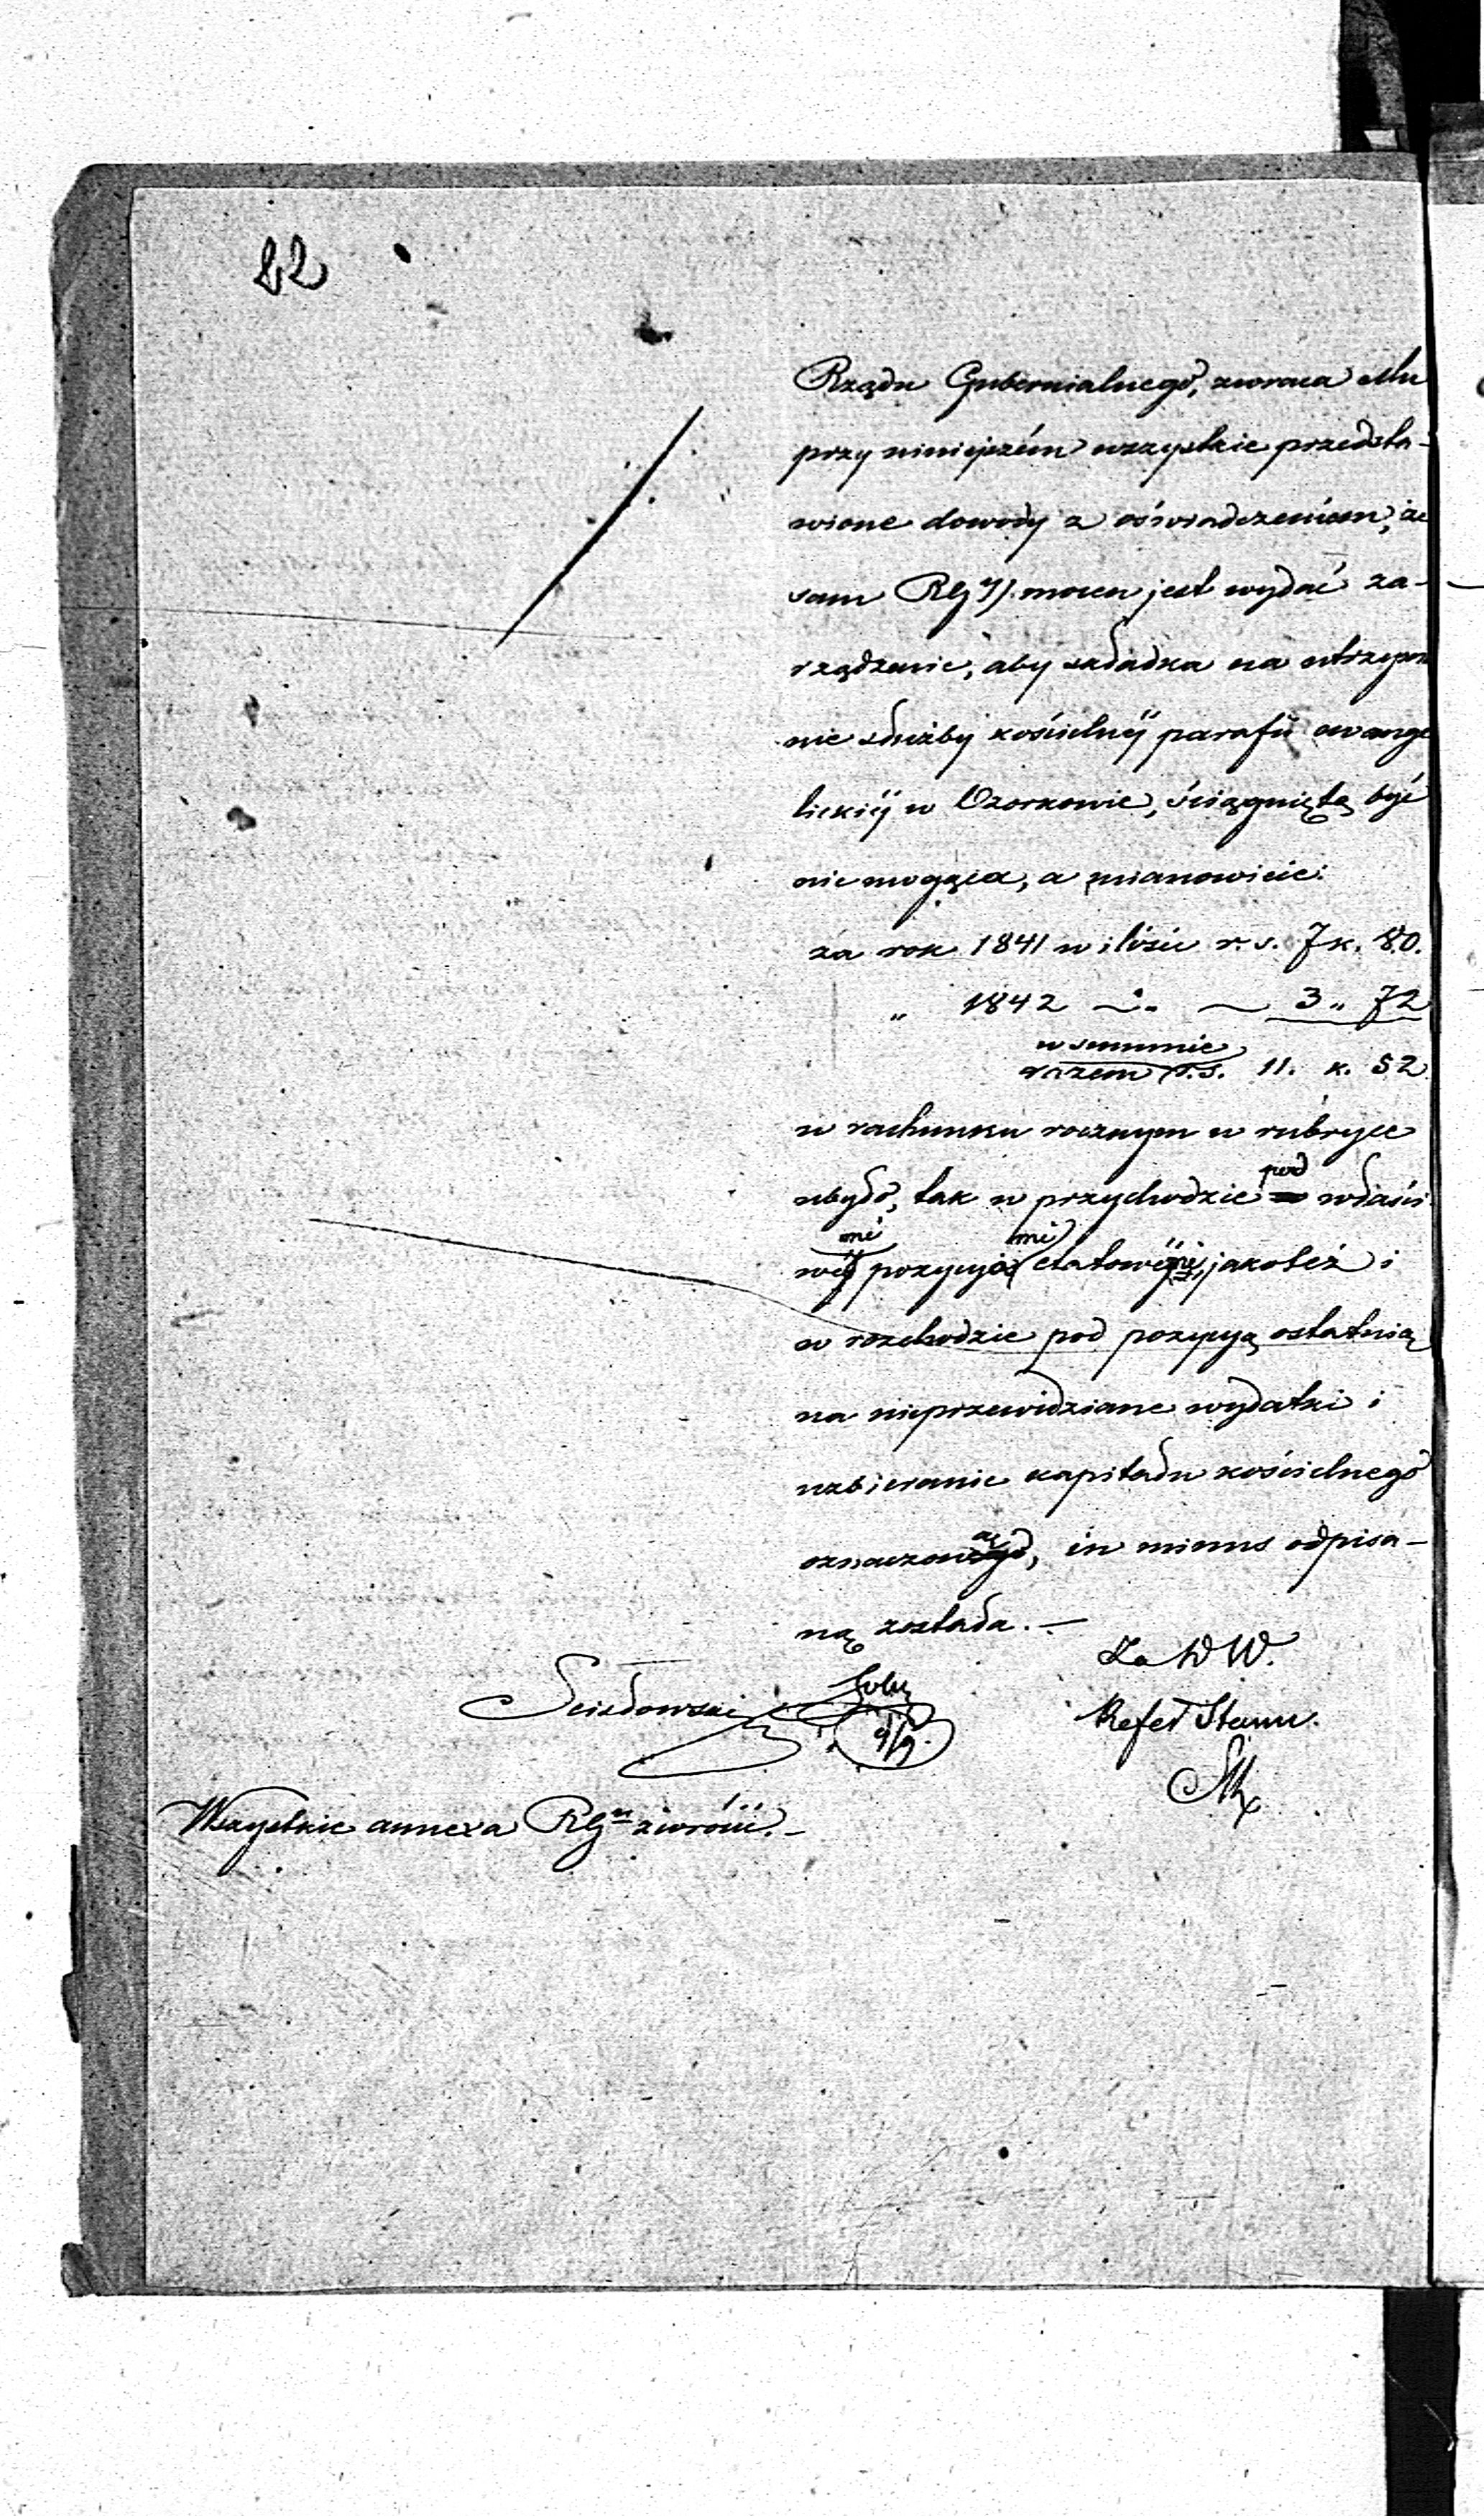 82
Rządu Gubernialnego, zwraca Mu
przy niniejszém wszystkie przedsta-
wione dowody z oświadczeniem, że
sam RG mocen jest wydać za-
rządzenie, aby składka na utrzyma
nie służby kościelnéj parafii ewange
lickiéj w Ozorkowie, ściągniętą być
nie mogąca, a mianowicie:
za rok 1841 w ilości r. s. 7 k. 80.
„ 1842 — „ — 3 „ 72
w summie
razem r. s. 11. k. 52
w rachunku rocznym w rubryce
ubyło, tak w przychodzie pod właści
wémi pozycjami etatowémi, jakoteż i
w rozchodzie pod pozycyą ostatnią
na nieprzewidziane wydatki i
uzbieranie kapitału kościelnego
oznaczoną, in minus odpisa-
ną została. —
Za D W.
Refer Stanu.
9/9.
Wszystkie annexa RG zwrócić. —